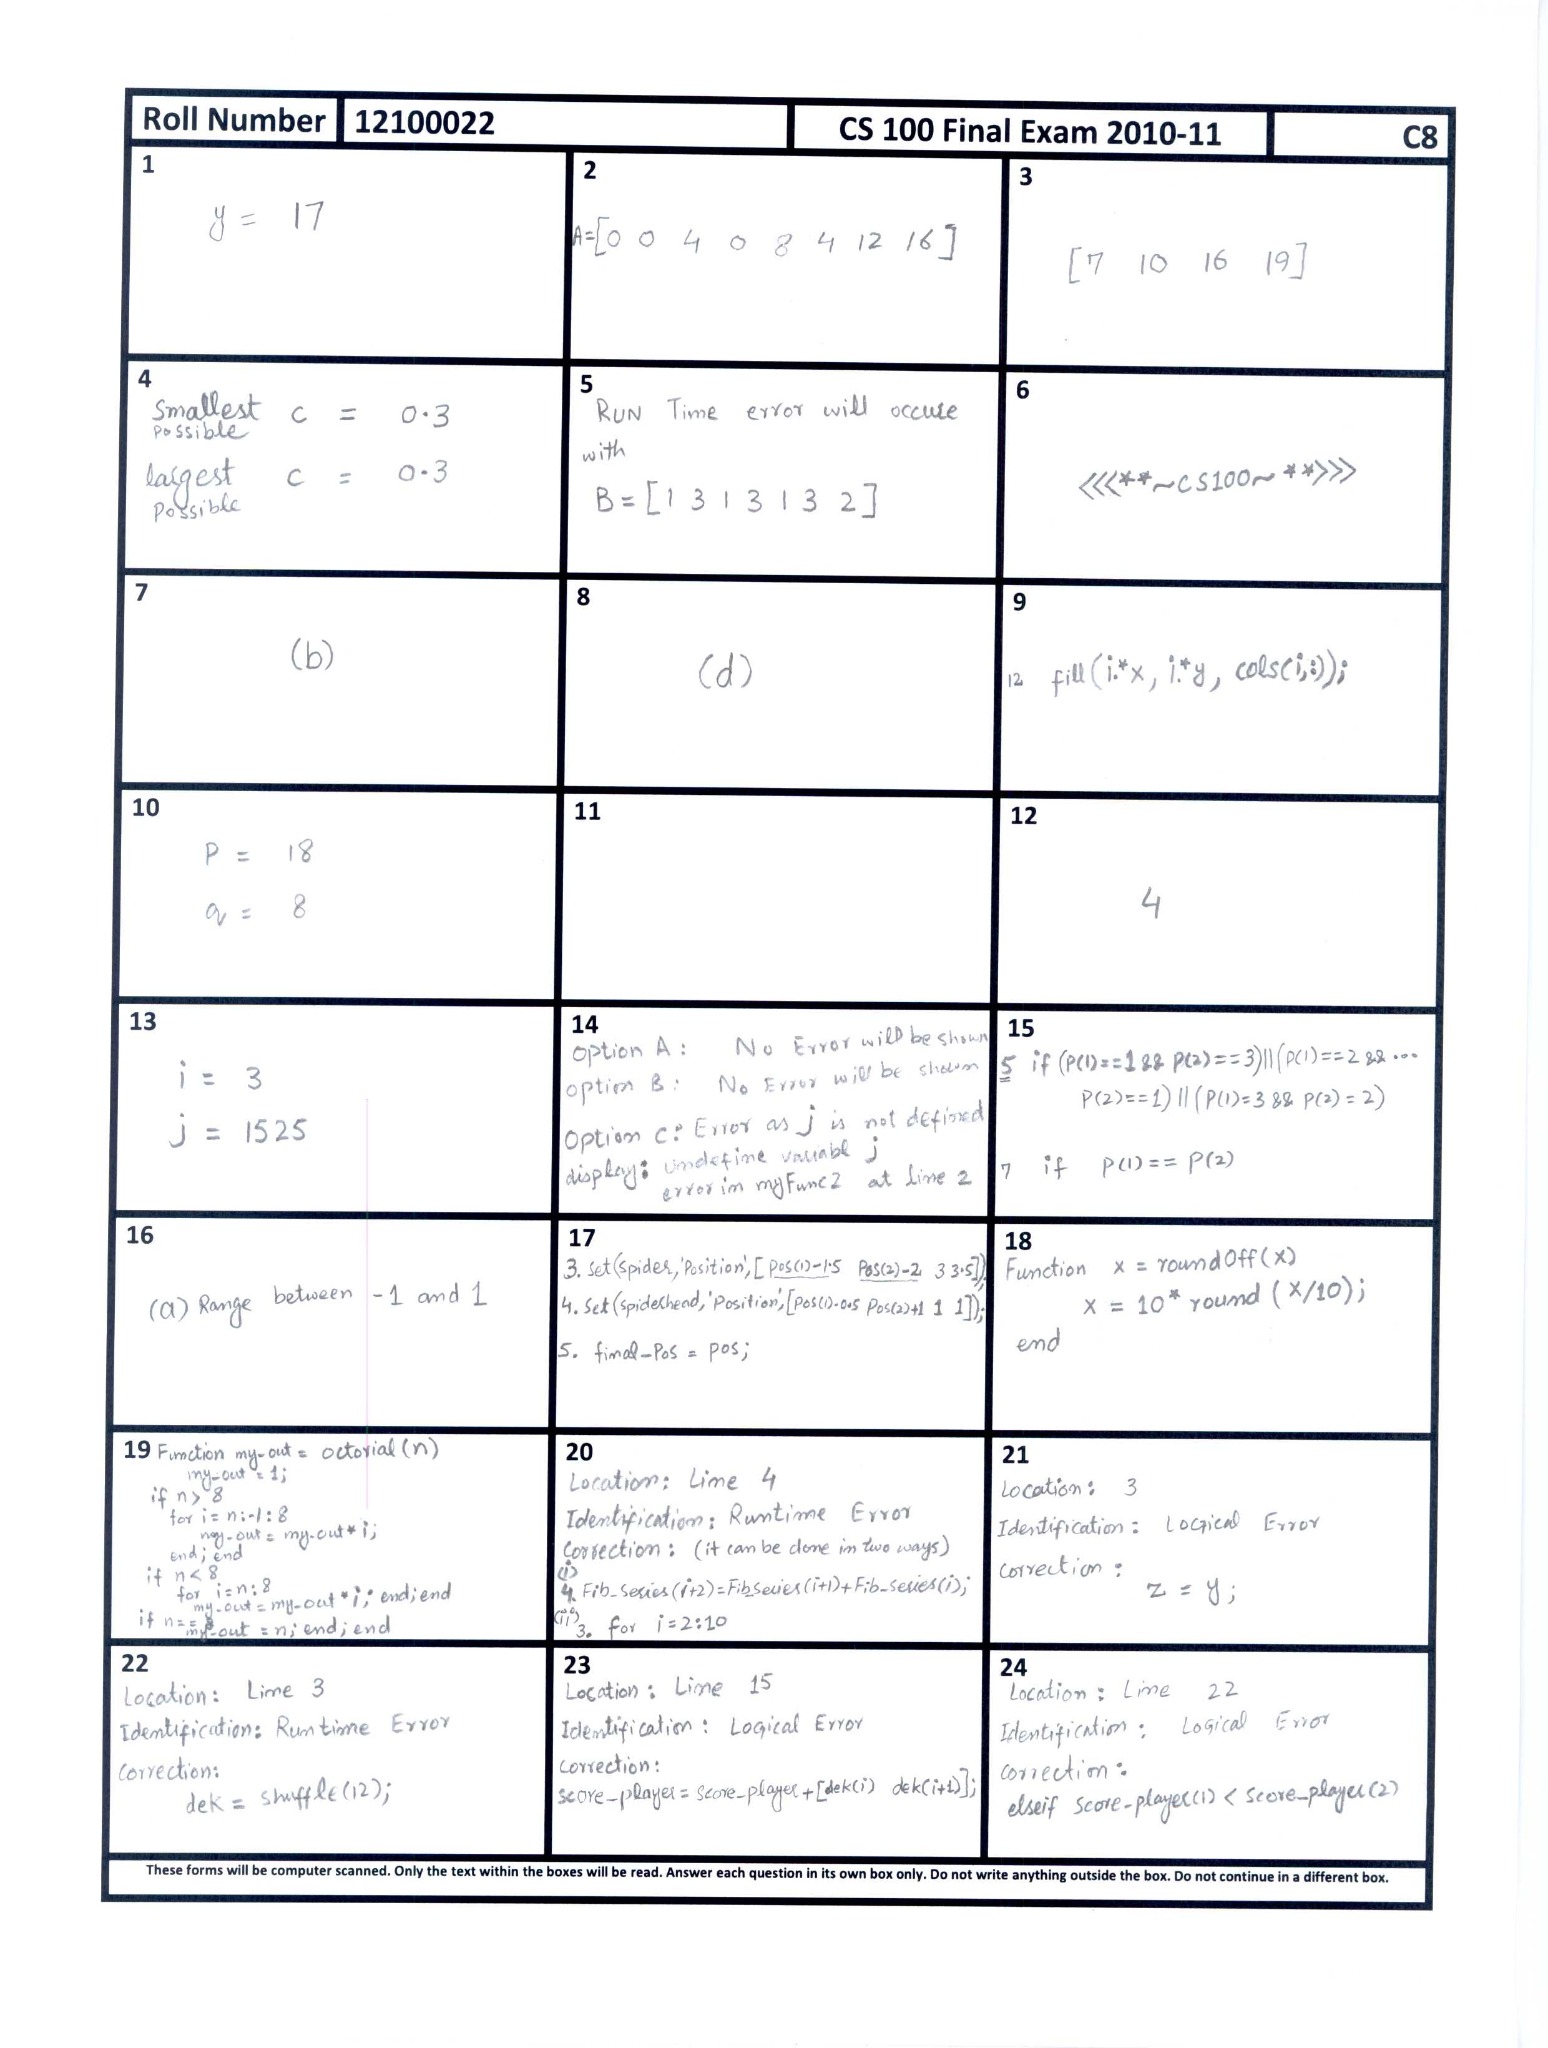 Roll Number 12100022 CS 100 Final Exam 2010-11 C8
1
y = 17
2
A=[0 0 4 0 8 4 12 16]
3
[7 10 16 19]
4
Smallest c = 0.3
Possible
largest c = 0.3
Possible
5
RUN Time error will occure
with
B = [1 3 1 3 1 3 2]
6
<<<**~CS100~**>>>
7
(b)
8
(d)
9
12 fill(i.*x, i.*y, cols(i,:));
10
P = 18
q = 8
11
12
4
13
i = 3
j = 1525
14
option A: No Error will be shown
option B: No Error will be shown
Option C: Error as j is not defined
display: undefine variabl j
error in myFunc2 at line 2
15
5 if (P(1)==1 && P(2)==3)||(P(1)==2 && ...
P(2)==1) || (P(1)=3 && P(2)=2)
7 if P(1)== P(2)
16
(a) Range between -1 and 1
17
3. Set(spider,'Position',[Pos(1)-1.5 Pos(2)-2 3 3.5]);
4. Set(spiderhead,'Position',[Pos(1)-0.5 Pos(2)+1 1 1]);
5. final_Pos = pos;
18
Function x = roundOff(x)
x = 10* round (x/10);
end
19 Function my-out = octorial(n)
my-out = 1;
if n> 8
for i= n:-1:8
my-out = my-out * i;
end; end
if n<8
for i=n:8
my-out = my-out * i; end; end
if n==8
my-out = n; end; end
20
Location: Line 4
Identification: Runtime Error
Correction: (it can be done in two ways)
(i)
4. Fib_Series(i+2)=FibSeries(i+1)+Fib_Series(i);
(ii)
3. for i=2:10
21
Location: 3
Identification: Logical Error
correction:
z = y;
22
Location: Line 3
Identification: Runtime Error
Correction:
dek = shuffle(12);
23
Location: Line 15
Identification: Logical Error
Correction:
score_player = score_player + [dek(i) dek(i+1)];
24
Location: Line 22
Identification: Logical Error
Correction:
elseif score_player(1) < score_player(2)
These forms will be computer scanned. Only the text within the boxes will be read. Answer each question in its own box only. Do not write anything outside the box. Do not continue in a different box.